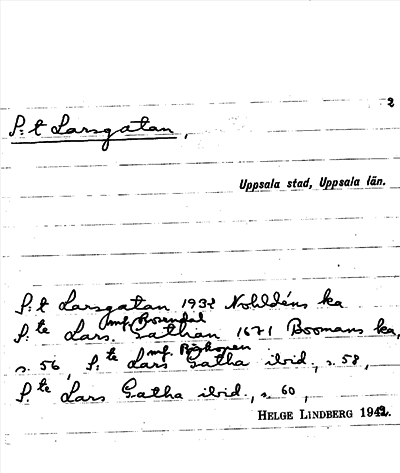 2
S:t Larsgatan,
Uppsala stad, Uppsala län.
S:t Larsgatan 1932 Nohldéns ka
mf. Rosendal
S:te Lars. Gathan 1671 Boomans ka,
mf. Biskopen
s. 56, S:te Lars Gatha ibid., s. 58,
S:te Lars Gatha ibid., s. 60,
HELGE LINDBERG 1942.